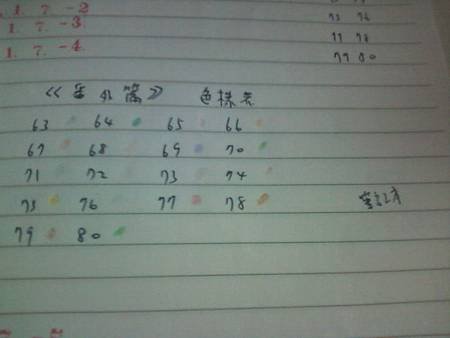 1. 7. -2
1. 7. -3
1. 7. -4
75 76
77 78
79 80
《番外篇》 色樣表
63 64 65 66
67 68 69 70
71 72 73 74
75 76 77 78
79 80